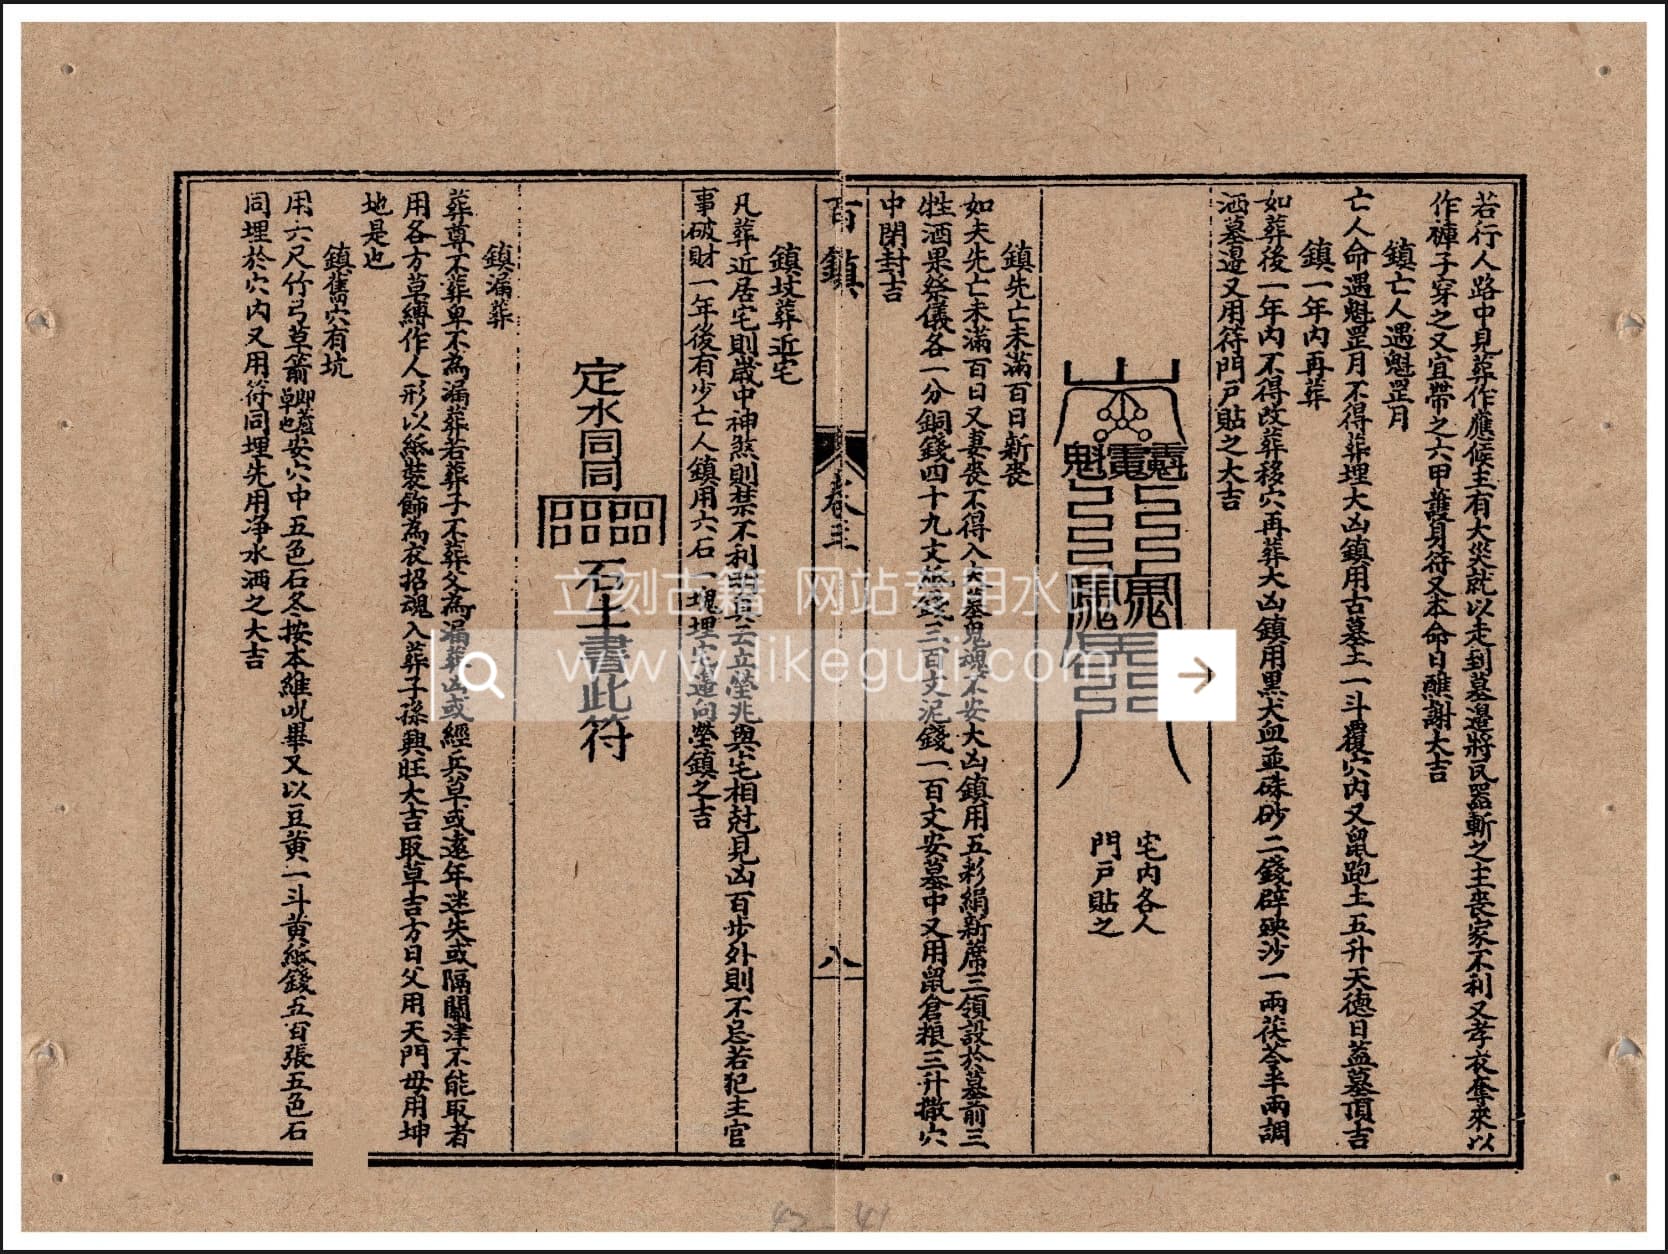 若行人路中見葬作應候主有大災就以走到墓邊將瓦器斬之主喪家不利又孝衣奪來以
作褲子穿之又宜帶之六甲護身符又本命日醮謝大吉
鎮亡人遇魁罡月
亡人命遇魁罡月不得葬埋大凶鎮用古墓土一斗覆穴內又鼠跑土五升天德日蓋墓頂吉
鎮一年內再葬
如葬後一年內不得改葬移穴再葬大凶鎮用黑犬血並硃砂二錢辟殃沙一兩茯苓半兩調
洒墓邊又用符門戶貼之大吉
宅內各人
門戶貼之
鎮先亡未滿百日新喪
如夫先亡未滿百日又妻喪不得入大墓鬼魂不安大凶鎮用五彩絹新蓆三領設於墓前三
牲酒果祭儀各一分銅錢四十九文紙錢三百文泥錢一百文安墓中又用鼠倉粮三升撒穴
中閉封吉
百鎮 卷三 八
鎮坟葬近宅
凡葬近居宅則歲中神煞則禁不利 云立塋兆與宅相尅見凶百步外則不忌若犯主官
事破財一年後有少亡人鎮用六石一塊埋宅邊向塋鎮之吉
定水同同
石土書此符
鎮漏葬
葬尊不葬卑不為漏葬若葬子不葬父為漏葬凶或經兵草或遠年迷失或隔關津不能取者
用各方草縛作人形以紙裝飾為衣招魂入葬子孫興旺大吉取草吉方日父用天門母用坤
地是也
鎮舊穴有坑
用六尺竹弓草箭即蘆草也安穴中五色石冬按本維吮畢又以豆黃一斗黃紙錢五百張五色石
同埋於穴內又用符同埋先用净水洒之大吉
立刻古籍 网站专用水印
www.likeguji.com
42 41